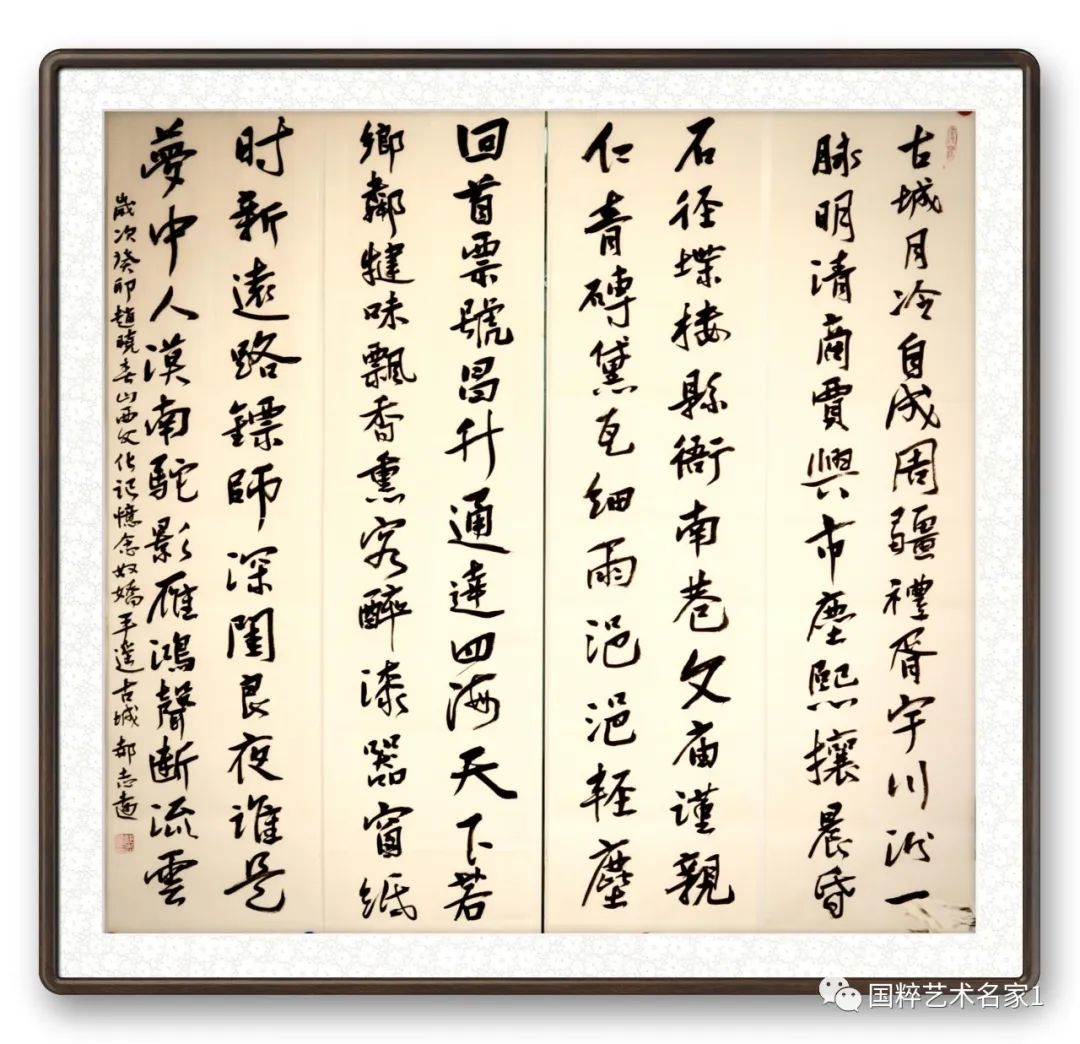 古城月冷自成周疆禮胥宇川汾一
脉明清商賈興市塵熙攘晨昏
石徑堞楼縣衙南巷文庙謹親
仁青磚黛瓦細雨浥浥輕塵
回首票號昌升通達四海天下若
鄉鄰犍味飄香熏客醉漆器窗紙
时新遠路鏢師深閨良夜谁是
夢中人漠南駝影雁鴻聲断流雲
歲次癸卯趙曉春山西文化记憶念奴嬌平遥古城郝志
国粹艺术名家1